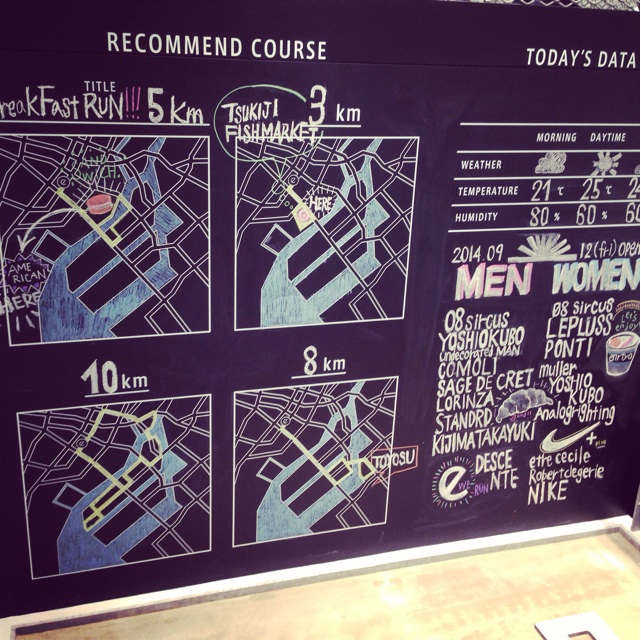 RECOMMEND COURSE
TITLE
reakFast RUN!!! 5 Km
SANDWICH
AME
RICAN
HERE
TSUKIJI
FISHMARKET
3 km
HERE
10 km
8 km
TOYOSU
TODAY'S DATA
MORNING DAYTIME
WEATHER
TEMPERATURE 21 ℃ 25 ℃ 2
HUMIDITY 80 % 60 % 60
2014.09 12(fri) open
MEN
08 sircus
YOSHIOKUBO
undecorated MAN
COMOLI
SAGE DE CRET
LORINZA
STANDRD
KIJIMATAKAYUKI
e WE RUN
DESCE
NTE
WOMEN
08 sircus
LEPLUSS
PONTI
Let's
enjoy
muller
YOSHIO
KUBO
Analoglighting
+
etre cecile
Robertclegerie
NIKE